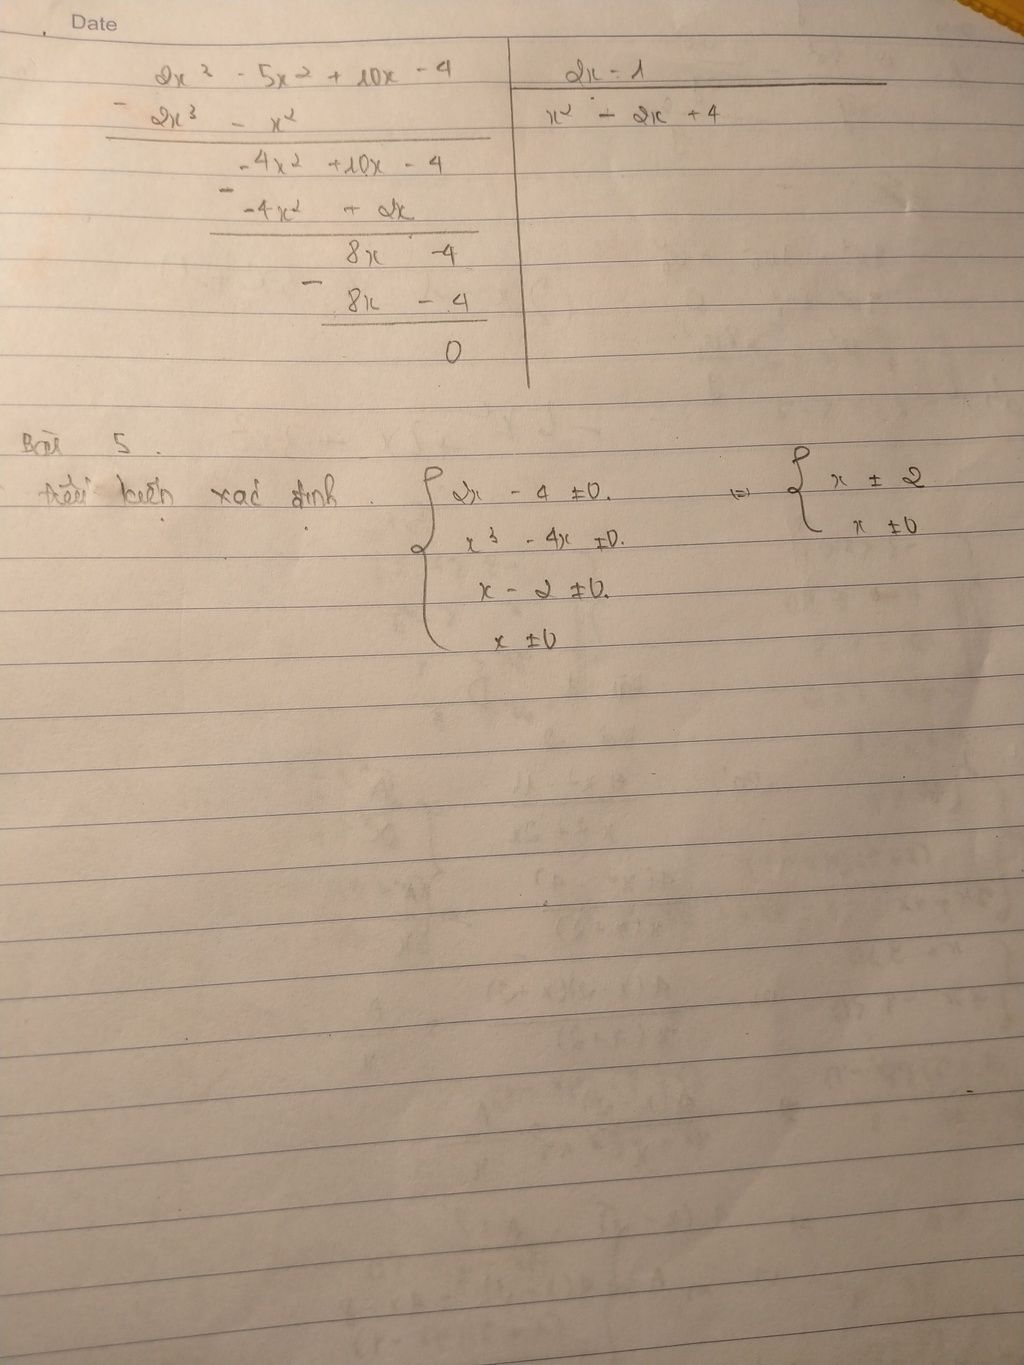 Date
2x³ - 5x² + 10x - 4 | 2x - 1
- 2x³ - x² | x² - 2x + 4
-4x² + 10x - 4
- -4x² + 2x
8x -4
- 8x - 4
0
Bài 5.
điều kiện xác định. { 2x - 4 ≠ 0. ⇔ { x ≠ 2
x³ - 4x ≠ 0. x ≠ 0
x - 2 ≠ 0.
x ≠ 0